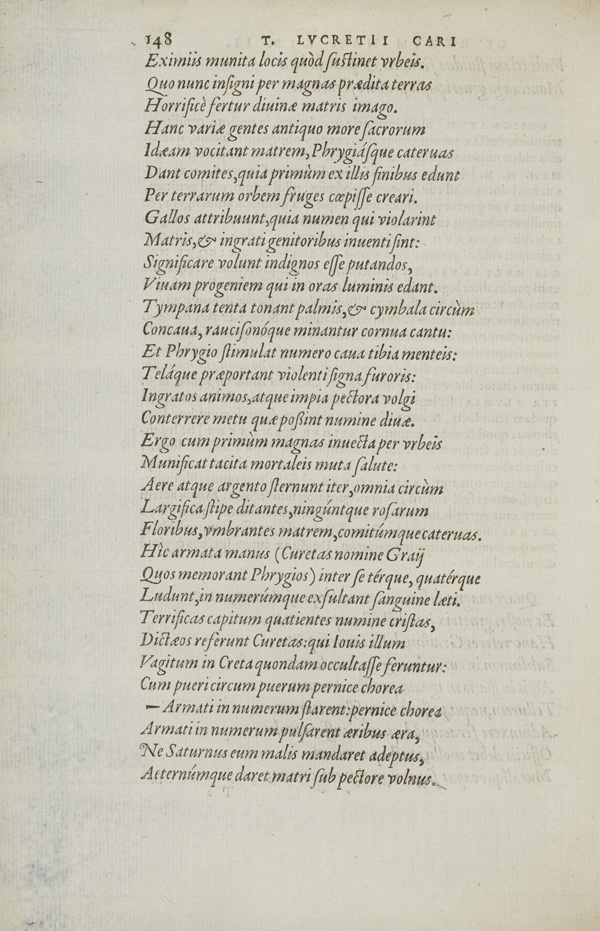 148 T. LVCRETII CARI
Eximiis munita locis quòd sustinet vrbeis.
Quo nunc insigni per magnas prædita terras
Horrificè fertur diuinæ matris imago.
Hanc variæ gentes antiquo more sacrorum
Idæam vocitant matrem, Phrygiásque cateruas
Dant comites, quia primùm ex illis finibus edunt
Per terrarum orbem fruges cœpisse creari.
Gallos attribuunt, quia numen qui violarint
Matris, & ingrati genitoribus inuenti sint:
Significare volunt indignos esse putandos,
Viuam progeniem qui in oras luminis edant.
Tympana tenta tonant palmis, & cymbala circùm
Concaua, raucisonóque minantur cornua cantu:
Et Phrygio stimulat numero caua tibia menteis:
Teláque præportant violenti signa furoris:
Ingratos animos, atque impia pectora volgi
Conterrere metu quæ possint numine diuæ.
Ergo cum primùm magnas inuecta per vrbeis
Munificat tacita mortaleis muta salute:
Aere atque argento sternunt iter, omnia circùm
Largifica stipe ditantes, ningúntque rosarum
Floribus, vmbrantes matrem, comitúmque cateruas.
Hìc armata manus (Curetas nomine Graij
Quos memorant Phrygios) inter se térque, quatérque
Ludunt, in numerúmque exsultant sanguine læti.
Terrificas capitum quatientes numine cristas,
Dictæos referunt Curetas: qui Iouis illum
Vagitum in Creta quondam occultasse feruntur:
Cum pueri circum puerum pernice chorea
— Armati in numerum starent: pernice chorea
Armati in numerum pulsarent æribus æra,
Ne Saturnus eum malis mandaret adeptus,
Aeternúmque daret matri sub pectore volnus.